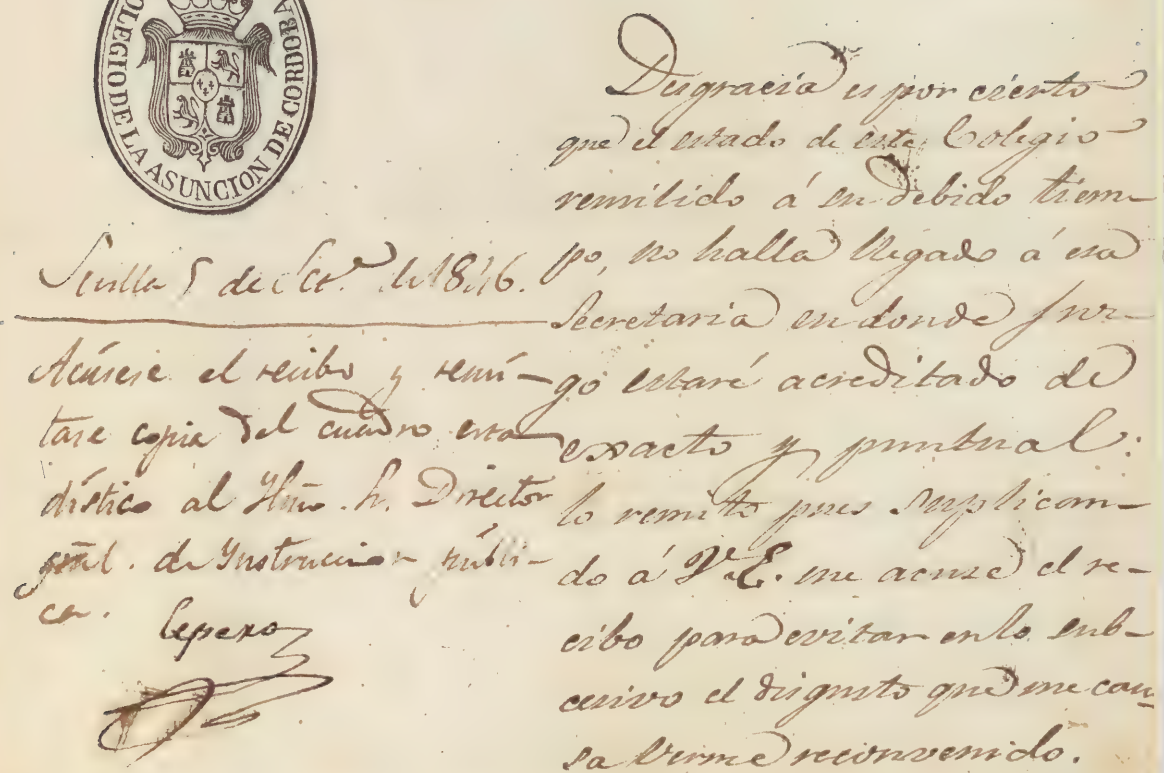 COLEGIO DE LA ASUNCION DE CORDOBA
Sevilla 5 de Set.e de 1846.
Acúsese el recibo y remí-
tase copia del cuadro esta
dístico al Illmo. Sr. Director
gral. de Instruccion públi-
ca.
Cepero
Desgracia es por cierto
que el estado de este Colegio
remitido á su debido tiem-
po, no halla llegado á esa
Secretaria en donde juz-
go estaré acreditado de
exacto y puntual:
lo remito pues suplican-
do á V.E. me acuse el re-
cibo para evitar en lo sub-
cesivo el disgusto que me cau-
sa verme reconvenido.